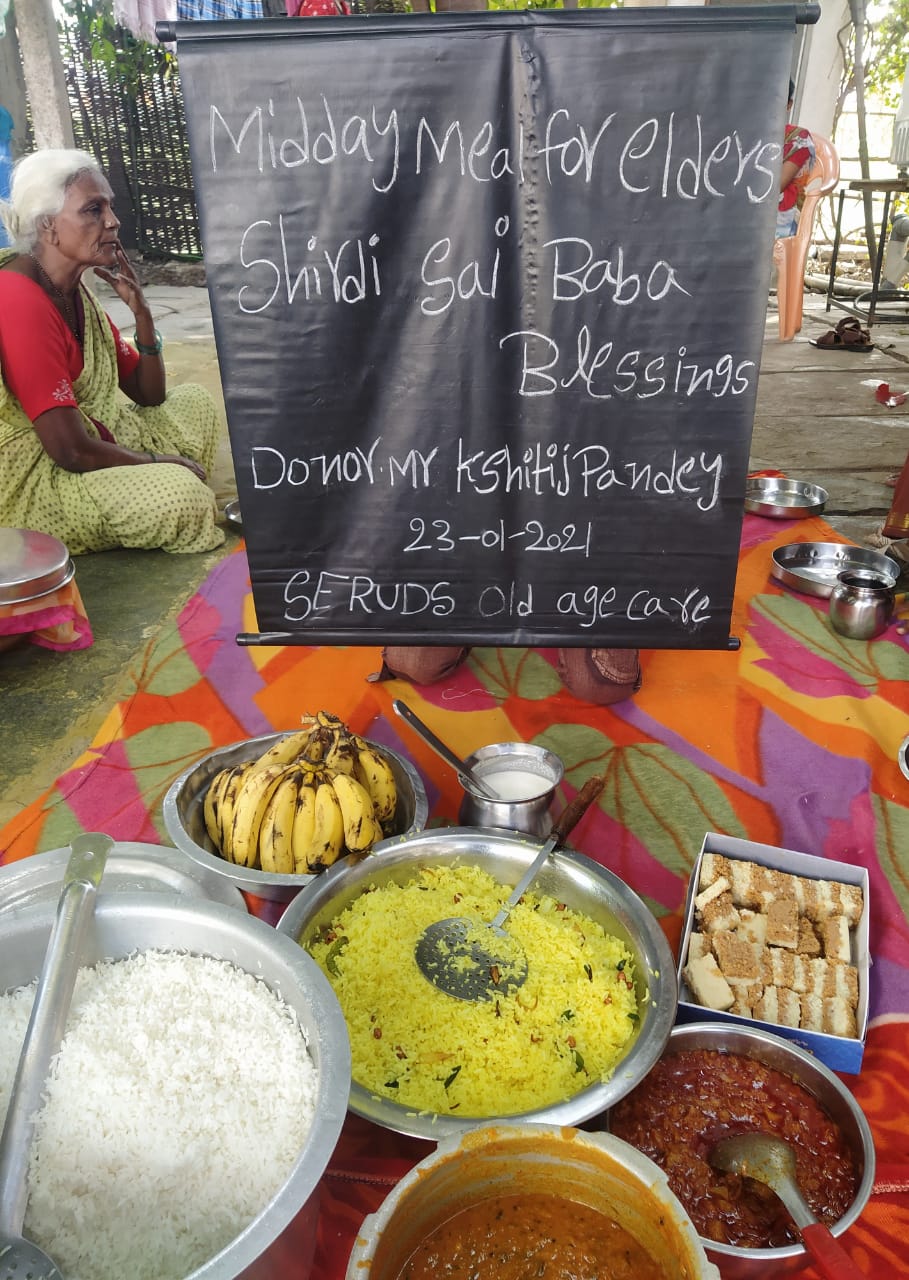 Midday Meal for elders
Shirdi Sai Baba
Blessings
Donor. Mr Kshitij Pandey
23-01-2021
SERUDS Old age care